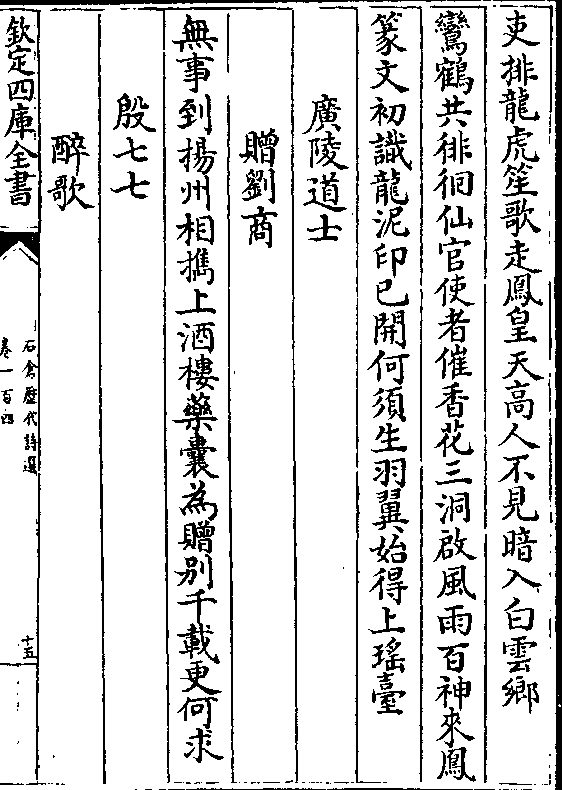 吏排龍虎笙歌走鳳皇天高人不見暗入白雲鄉
鸞鶴共徘徊仙官使者催香花三洞啟風雨百神來鳳
篆文初識龍泥印已開何須生羽翼始得上瑤臺
廣陵道士
贈劉商
無事到揚州相擕上酒樓藥囊為贈别千載更何求
殷七七
醉歌
欽定四庫全書
石倉歷代詩選
卷一百四
十五